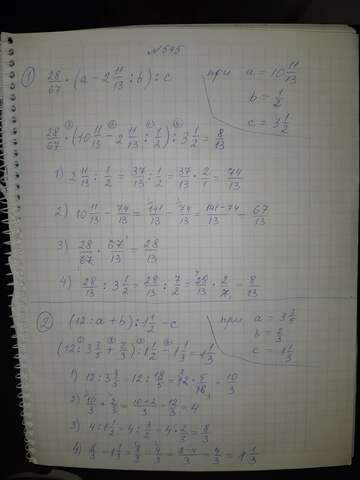 № 545
① 28/67 · (a − 2 11/13 : b) : c при a = 10 11/13
b = 1/2
c = 3 1/2
28/67 · (10 11/13 − 2 11/13 : 1/2) : 3 1/2 = 8/13
1) 2 11/13 : 1/2 = 37/13 : 1/2 = 37/13 · 2/1 = 74/13
2) 10 11/13 − 74/13 = 141/13 − 74/13 = 141−74/13 = 67/13
3) 28/67 · 67/13 = 28/13
4) 28/13 : 3 1/2 = 28/13 : 7/2 = 28/13 · 2/7 = 8/13
② (12 : a + b) : 1 1/2 − c при a = 3 3/5
b = 2/3
c = 1 1/3
(12 : 3 3/5 + 2/3) : 1 1/2 − 1 1/3 = 1 1/3
1) 12 : 3 3/5 = 12 : 18/5 = 12 · 5/18 = 10/3
2) 10/3 + 2/3 = 10+2/3 = 12/3 = 4
3) 4 : 1 1/2 = 4 : 3/2 = 4 · 2/3 = 8/3
4) 8/3 − 1 1/3 = 8/3 − 4/3 = 8−4/3 = 4/3 = 1 1/3